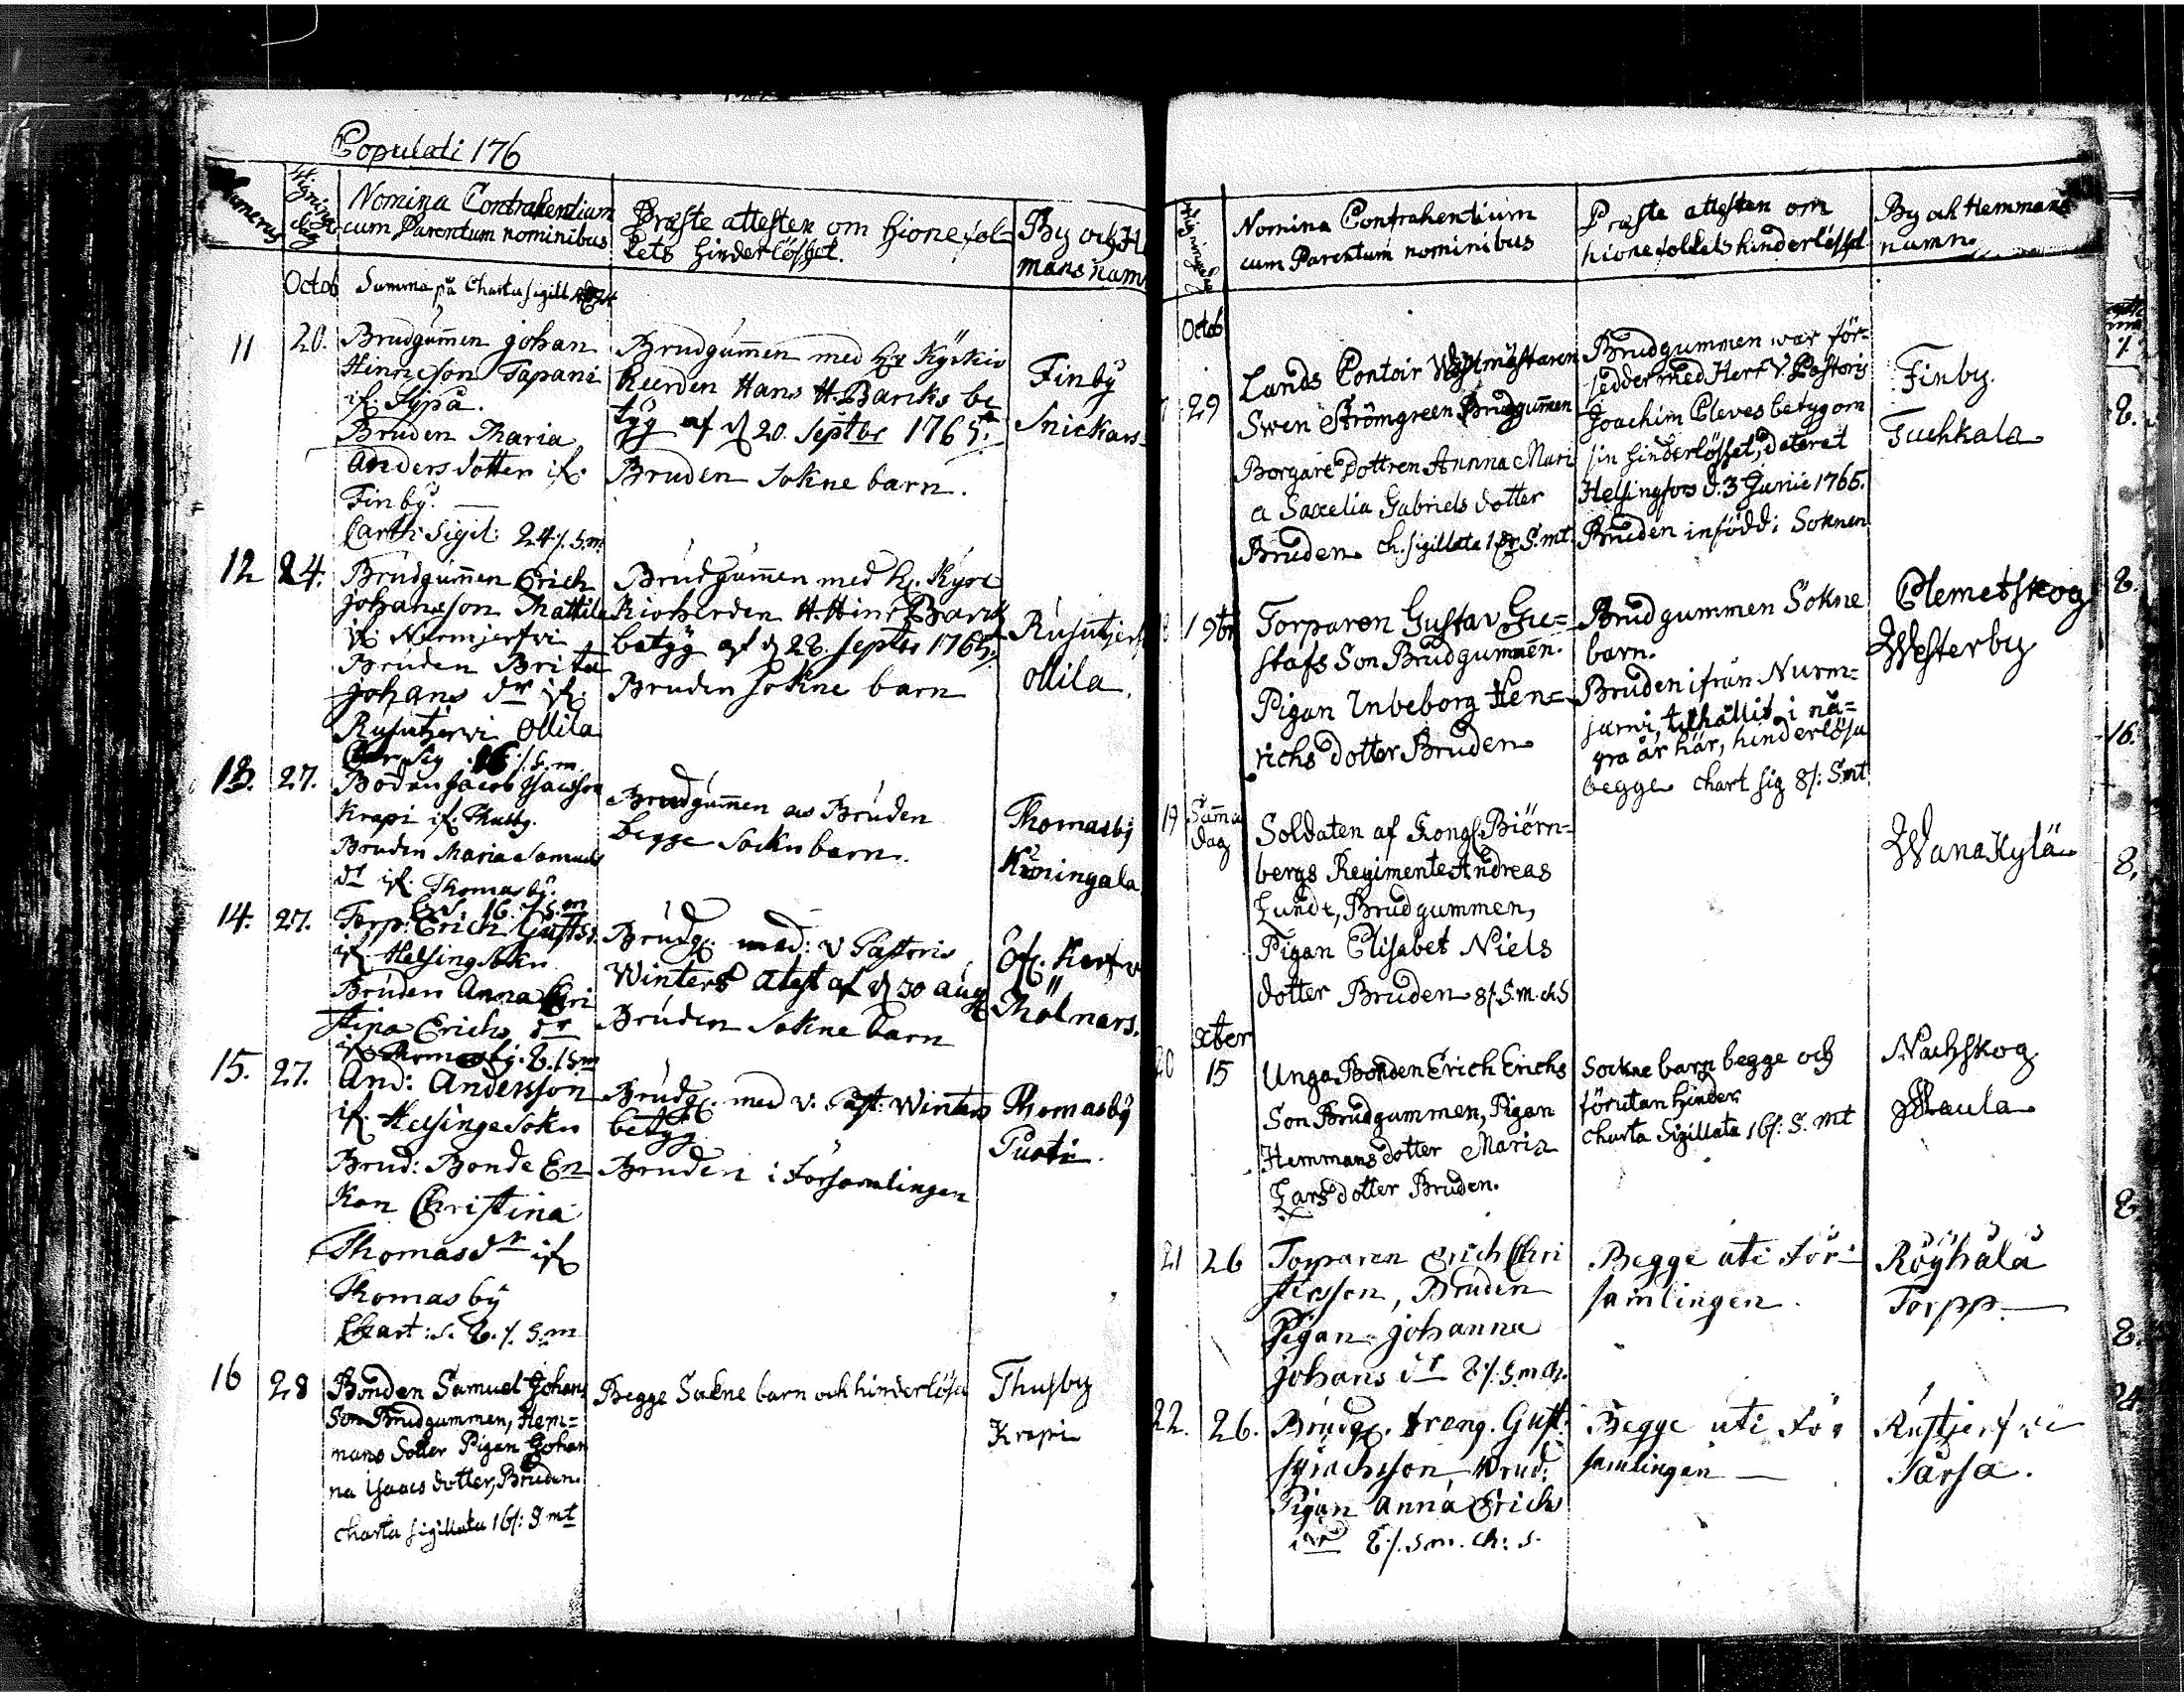 Copulati 176
Numerus
Wigning dag
Nomina Contrahentium
cum Parentum nominibus
Præste attester om hionefol
kets hinderlöshet.
By och H
mans namn
Octob
Summa på Charta sigill
11
20.
Brudgumen johan
Hinricson Tapani
if. Sypå.
Bruden Maria
Anders dotter if.
Finbÿ.
Carth: Sigil: 24 /. S.m.
Brudgumen med Hr Kyrkio
Heerden Hans H. Barcks be
tyg af d 20. Septbr 1765.
Bruden Sokne barn.
Finbÿ
Snickars
12
24.
Brudgumen Erich
Johansson Mattila
if. Nurmjerfvi
Bruden Brita
Johans dr if.
Rusutjervi Ollila
Char Sig. 16 /. S.m.
Brudgumen med H. Kyrc
kioherden H. Hinr Barck
betyg af d 28. Septbr 1765.
Bruden Sokne barn
Rusutjerf
Ollila.
13.
27.
Bonden Jacob Isacsson
Krapi if. Thusby.
Bruden Maria Samuels
dr if. Thomasbÿ.
C. S. 16. /. S.m
Brudgumen as Bruden
begge Sockn barn.
Thomasbÿ
Koningala
14.
27.
Torp. Erich Gustfs.
if Helsing Sokn
Bruden Anna Chri
stina Erichs dr
if Thomasbÿ. 8. /. S.m
Brudg. med: v Pastoris
Winters atest af d 30 aug
Bruden Sokne barn
Öf. Kerfv
Mölnars.
15.
27.
And: Andersson
if. Helsinge Sokn
Brud: Bonde En
kan Christina
Thomas dr if
Thomas bÿ
Chart: s. 8. /. S.m
Brudg. med v. Past: Winters
betyg
Bruden i Församlingen
Thomasbÿ
Pusti.
16
28
Bonden Samuel Johans
Son Brudgummen, Hem=
mans dotter Pigan Johan
na Isaacs dotter, Bruden.
charta sigillata 16 /: S. mt
Begge Sokne barn och hinderlösa
Thusby
Krapi
Wigningsdag
Nomina Contrahentium
cum Parentum nominibus
Præste attesten om
hionefolkets hinderlöshet
By och Hemmans
namn
Octob
29
Lands Contoir Wachtmästaren
Swen Strömgreen Brudgumen
Borgare Dottren Annna Mari
a Saxelia Gabriels dotter
Bruden. ch. sigillata 1 dr S. mt.
Brudgummen war för=
sedder med Herr V Pastoris
Joachim Cleves betyg om
sin hinderlöshet, dateret
Helsingfors d. 3 Junii 1765.
Bruden infödd i Soknen
Finby.
Tuchkala
1 9br
Torparen Gustav Gu=
stafs Son Brudgummen.
Pigan Inbeborg Hen=
richs dotter Bruden
Brudgummen Sokne
barn.
Bruden ifrån Nurm=
jarvi, tilhållit i nå=
gra år här, hinderlösa
begge chart sig 8 /: Smt
Clemetskog
Westerby
19
Samma
dag
Soldaten af Kongl. Biörn=
bergs Regimente Andreas
Lundt, Brudgummen,
Pigan Elisabet Niels
dotter Bruden 8 /. S.m. ch S
Wanakylä
20
xber
15
Unga Bonden Erich Erichs
Son Brudgummen, Pigan
Hemmans dotter Maria
Lars dotter Bruden.
Sockne barn begge och
förutan hinder
charta Sigillata 16 /: S. mt
Nachskog
Maula
21
26
Torparen Erich Chri
stersson, Bruden
Pigan Johanna
johans dr 8 /. S.m ch.
Begge uti För=
samlingen.
Röÿhälä
Torpp.
22.
26.
Brudg. Dreng. Gust.
Brud:
Pigan Anna Erichs
dr 8 /. S.m. ch: s.
Begge uti För
samlingen
Rustjerfvi
Jårsa.
8.
8.
16.
8.
8.
8.
24